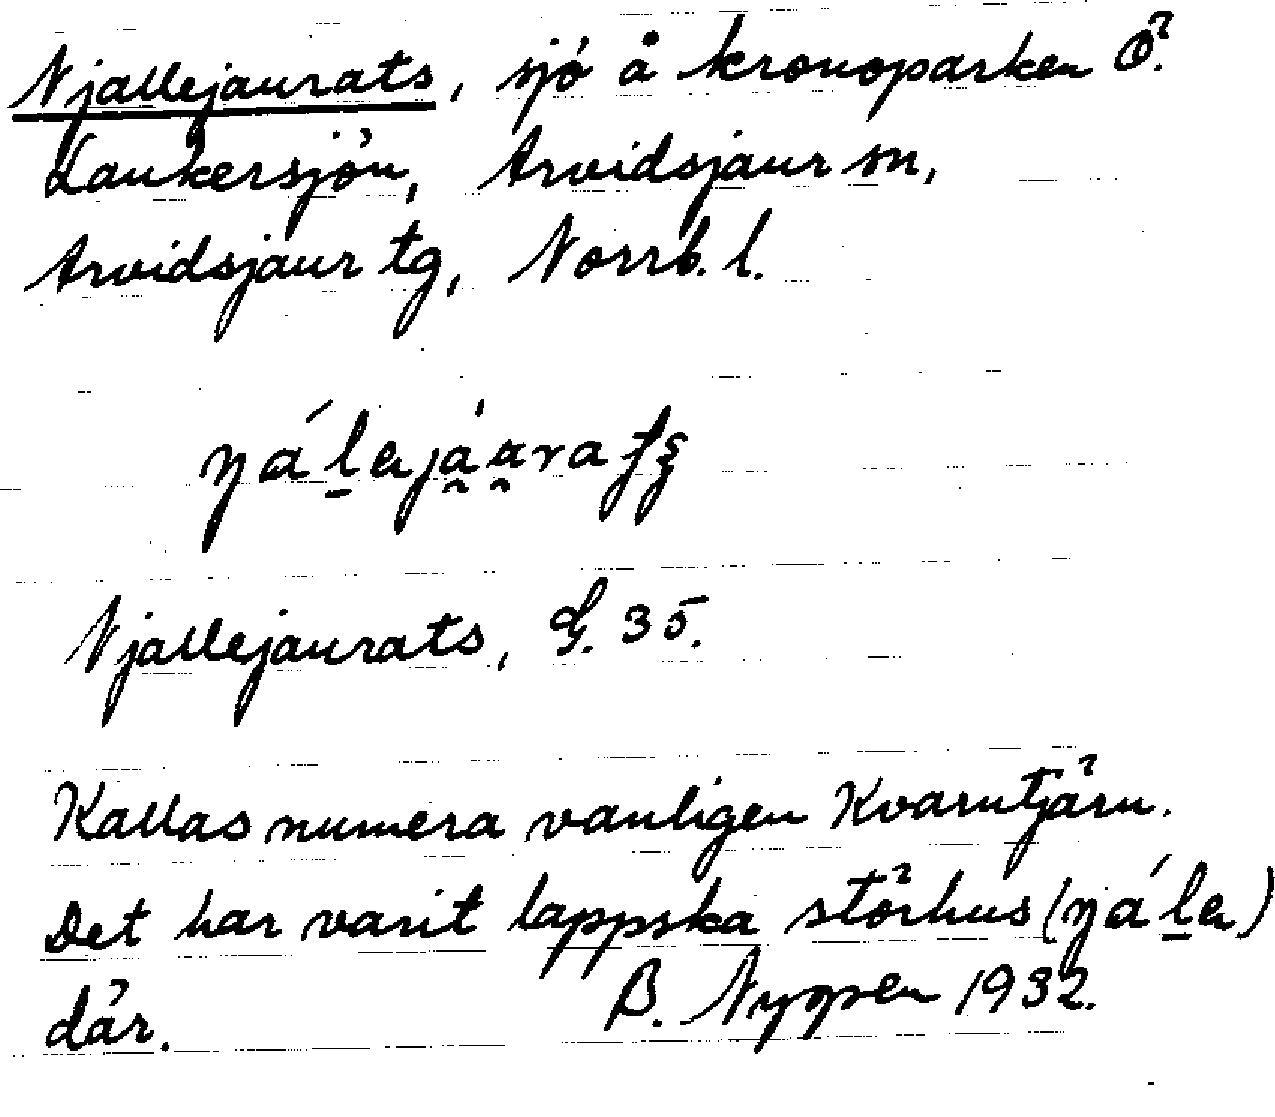 Njallejaurats, sjö å kronoparken Ö.
Laukersjön, Arvidsjaur sn,
Arvidsjaur tg, Norrb. l.
Njallejaurats, G. 35.
Kallas numera vanligen Kvarntjärn.
Det har varit lappska störhus
där. B. Nygren 1932.